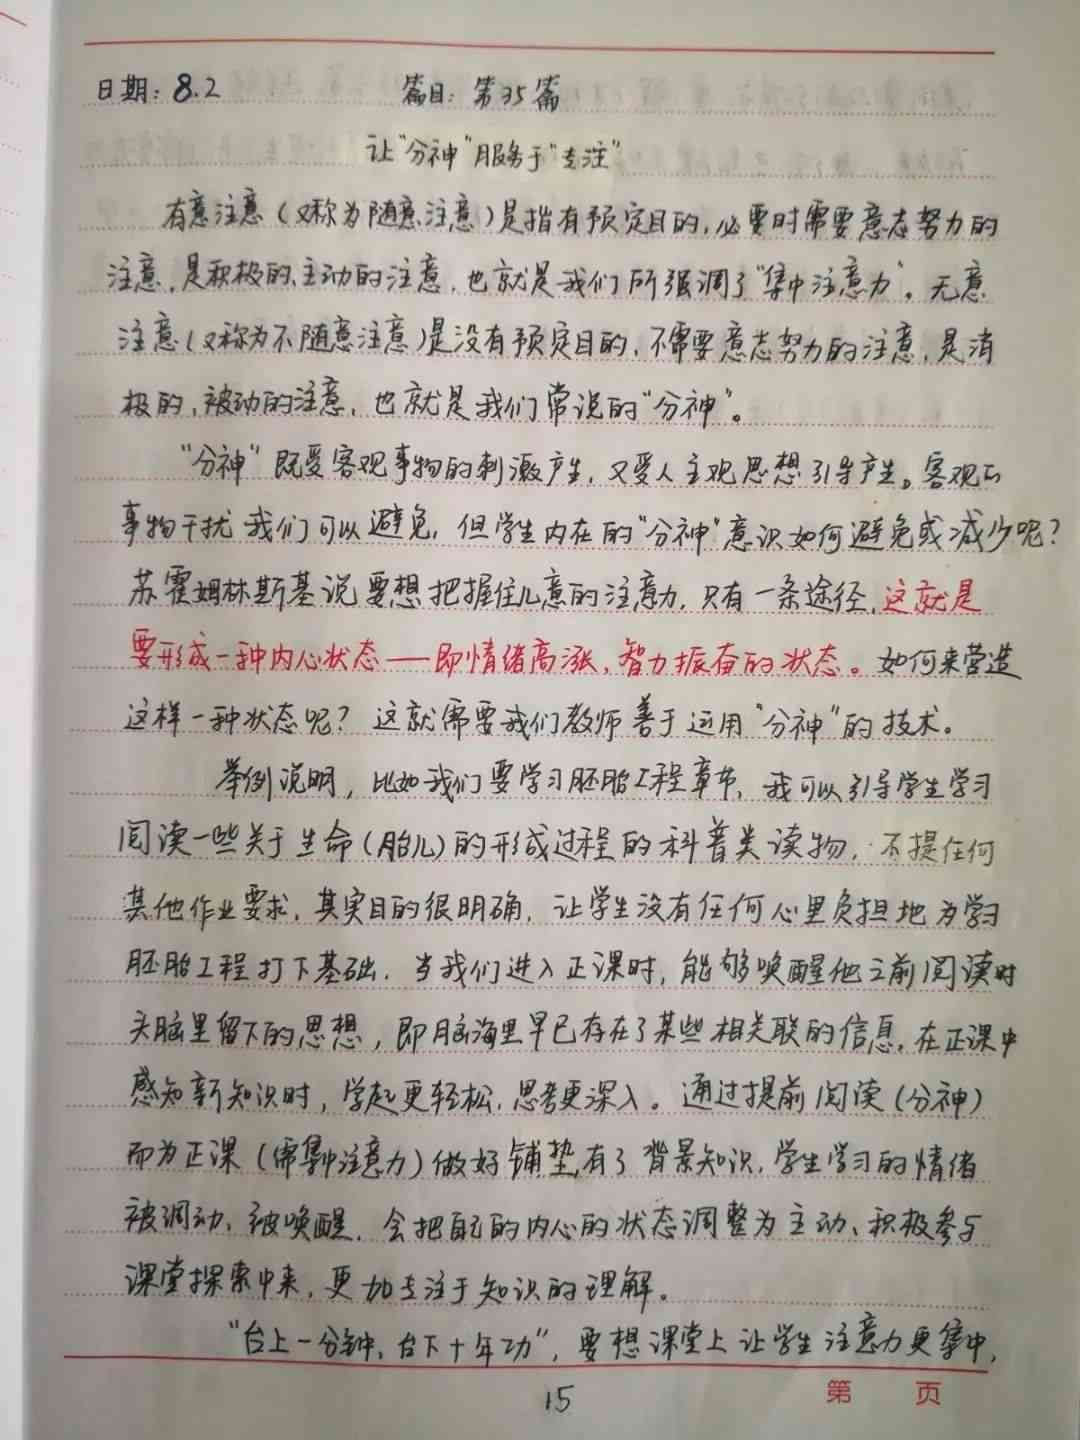 日期：8.2 篇目：第35篇
让“分神”服务于“专注”
有意注意（又称为随意注意）是指有预定目的，必要时需要意志努力的
注意，是积极的、主动的注意，也就是我们所强调了“集中注意力”。无意
注意（又称为不随意注意）是没有预定目的，不需要意志努力的注意，是消
极的，被动的注意，也就是我们常说的“分神”。
“分神”既受客观事物的刺激产生，又受人主观思想引导产生。客观的
事物干扰我们可以避免，但学生内在的“分神”意识如何避免或减少呢？
苏霍姆林斯基说要想把握住儿意的注意力，只有一条途径，这就是
要形成一种内心状态——即情绪高涨，智力振奋的状态。如何来营造
这样一种状态呢？这就需要我们教师善于运用“分神”的技术。
举例说明，比如我们要学习胚胎工程章节，我可以引导学生学习
阅读一些关于生命（胎儿）的形成过程的科普类读物，不提任何
其他作业要求，其实目的很明确，让学生没有任何心里负担地为学习
胚胎工程打下基础．当我们进入正课时，能够唤醒他之前阅读时
头脑里留下的思想，即脑海里早已存在了某些相关联的信息，在正课中
感知新知识时，学起更轻松，思考更深入。通过提前阅读（分神）
而为正课（需集中注意力）做好铺垫，有了背景知识，学生学习的情绪
被调动、被唤醒，会把自己的内心的状态调整为主动、积极参与
课堂探索中来，更加专注于知识的理解。
“台上一分钟，台下十年功”，要想课堂上让学生注意力更集中，
15
第 页